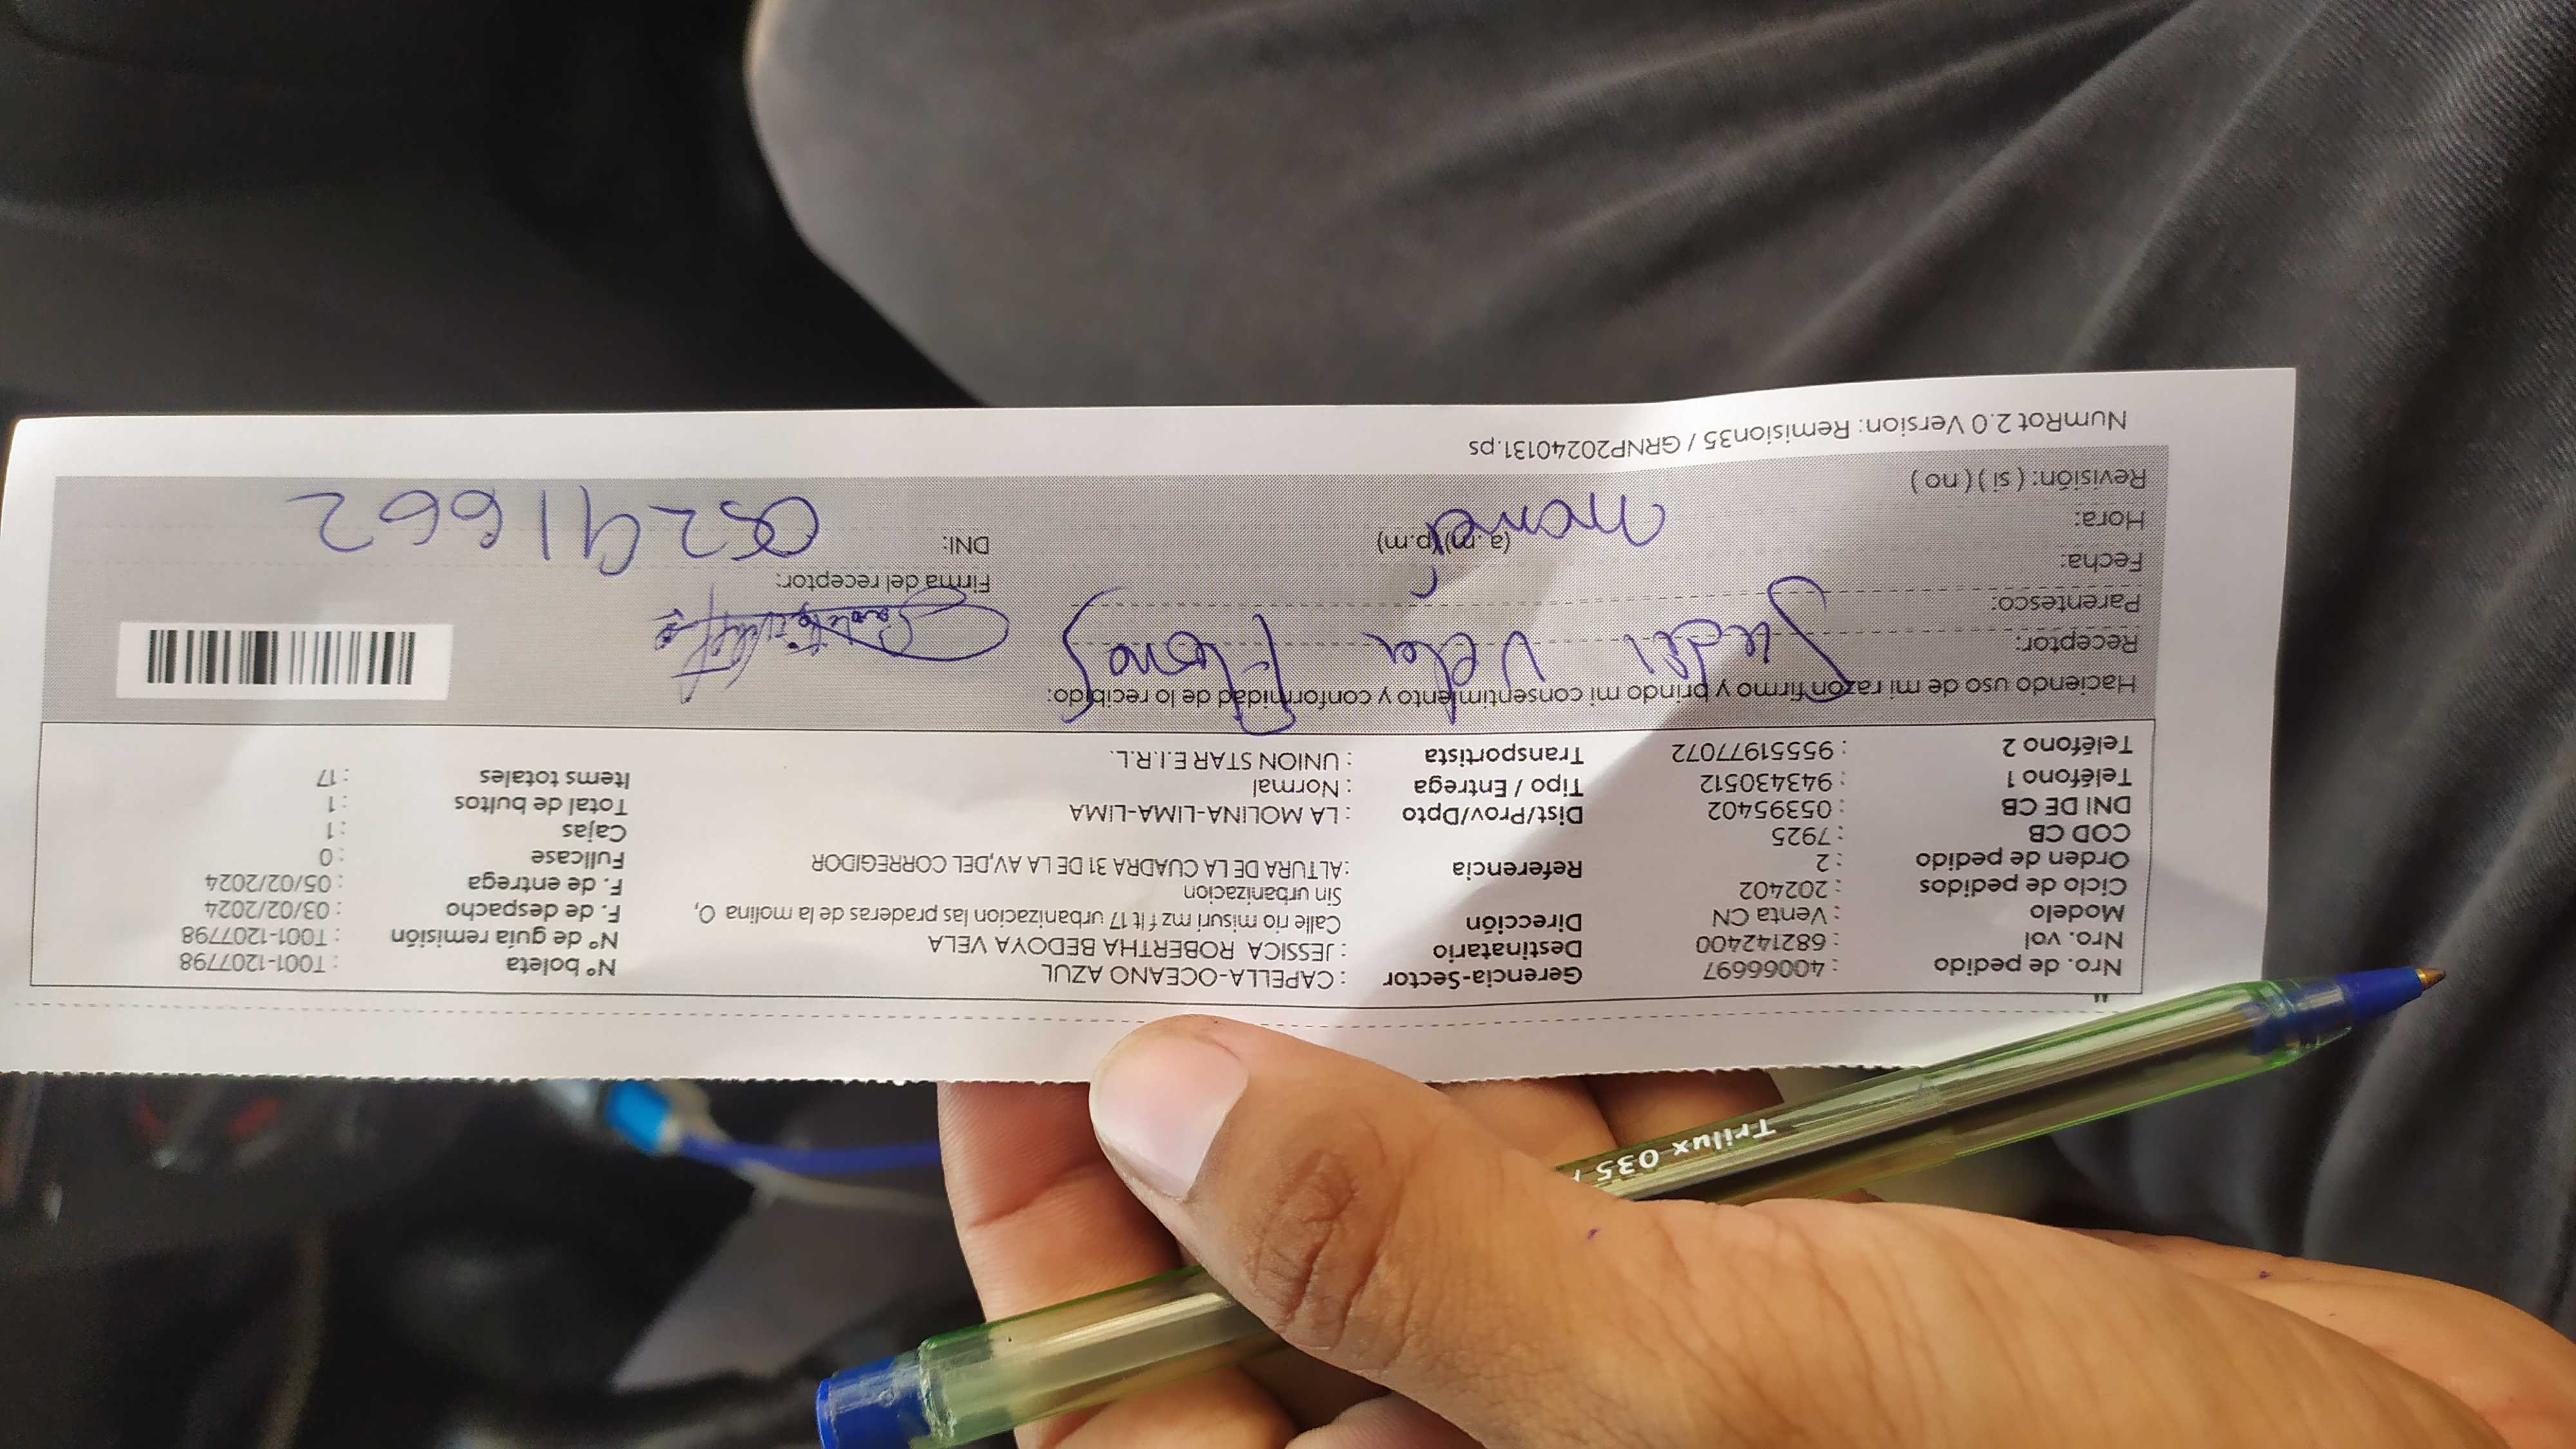 Nro. de pedido : 40066697 Gerencia-Sector : CAPELLA-OCEANO AZUL N° boleta : T001-1207798
Nro. vol : 682142400 Destinatario : JESSICA ROBERTHA BEDOYA VELA N° de guía remisión : T001-1207798
Modelo : Venta CN Dirección Calle rio misuri mz f lt 17 urbanizacion las praderas de la molina 0, F. de despacho : 03/02/2024
Ciclo de pedidos : 202402 Sin urbanizacion F. de entrega : 05/02/2024
Orden de pedido : 2 Referencia :ALTURA DE LA CUADRA 31 DE LA AV,DEL CORREGIDOR Fullcase : 0
COD CB : 7925 Cajas : 1
DNI DE CB : 05395402 Dist/Prov/Dpto : LA MOLINA-LIMA-LIMA Total de bultos : 1
Teléfono 1 : 943430512 Tipo / Entrega : Normal Items totales : 17
Teléfono 2 : 95551977072 Transportista : UNION STAR E.I.R.L.
Haciendo uso de mi razón firmo y brindo mi consentimiento y conformidad de lo recibido:
Receptor: Vela Flores
Parentesco:
Firma del receptor:
Fecha:
Hora: (a.m) (p.m) mamá DNI: 05291662
Revisión: ( si ) ( no )
NumRot 2.0 Version: Remision35 / GRNP20240131.ps
Trilux 035